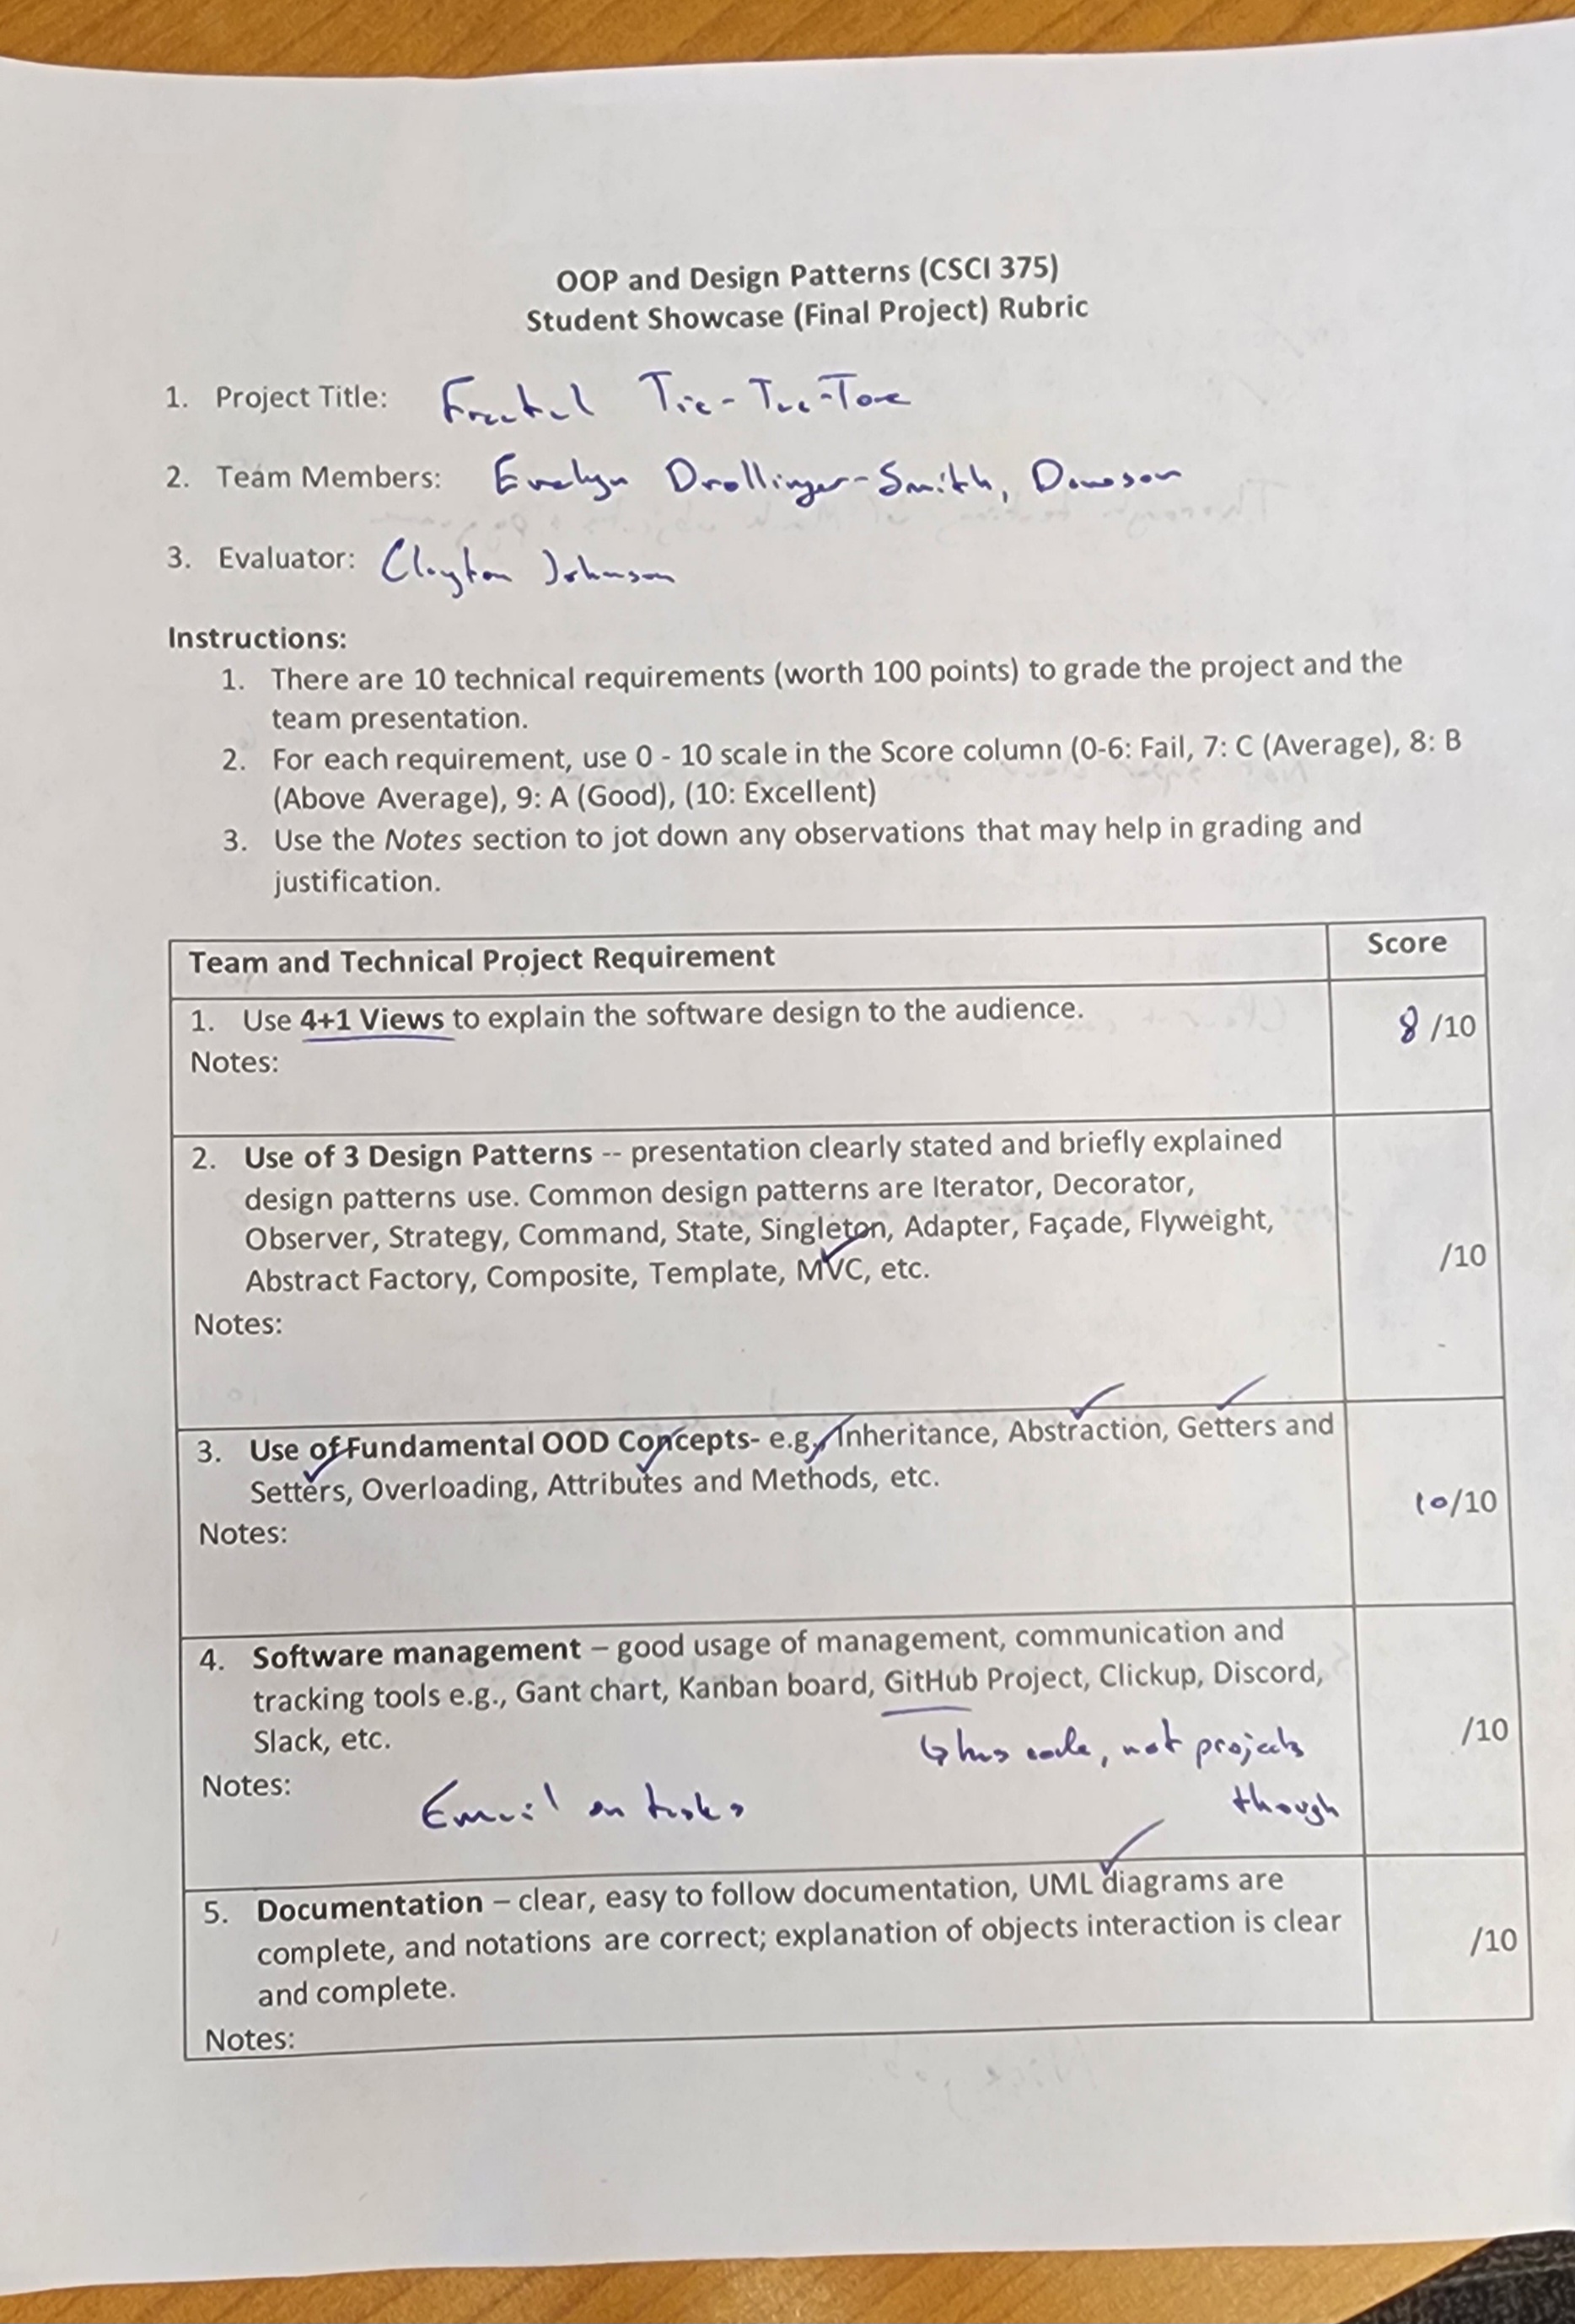 OOP and Design Patterns (CSCI 375)
Student Showcase (Final Project) Rubric
1. Project Title: Fractal Tic-Tac-Toe
2. Team Members: Evelyn Drollinger-Smith, Dawson
3. Evaluator: Clayton Johnson
Instructions:
1. There are 10 technical requirements (worth 100 points) to grade the project and the
team presentation.
2. For each requirement, use 0 - 10 scale in the Score column (0-6: Fail, 7: C (Average), 8: B
(Above Average), 9: A (Good), (10: Excellent)
3. Use the Notes section to jot down any observations that may help in grading and
justification.
Team and Technical Project Requirement Score
1. Use 4+1 Views to explain the software design to the audience.
8/10
Notes:
2. Use of 3 Design Patterns -- presentation clearly stated and briefly explained
design patterns use. Common design patterns are Iterator, Decorator,
Observer, Strategy, Command, State, Singleton, Adapter, Façade, Flyweight,
Abstract Factory, Composite, Template, MVC, etc.
/10
Notes:
3. Use of Fundamental OOD Concepts- e.g., Inheritance, Abstraction, Getters and
Setters, Overloading, Attributes and Methods, etc.
10/10
Notes:
4. Software management – good usage of management, communication and
tracking tools e.g., Gant chart, Kanban board, GitHub Project, Clickup, Discord,
Slack, etc.
↳ has code, not projects
though
/10
Notes: Email on tasks
5. Documentation – clear, easy to follow documentation, UML diagrams are
complete, and notations are correct; explanation of objects interaction is clear
and complete.
/10
Notes: